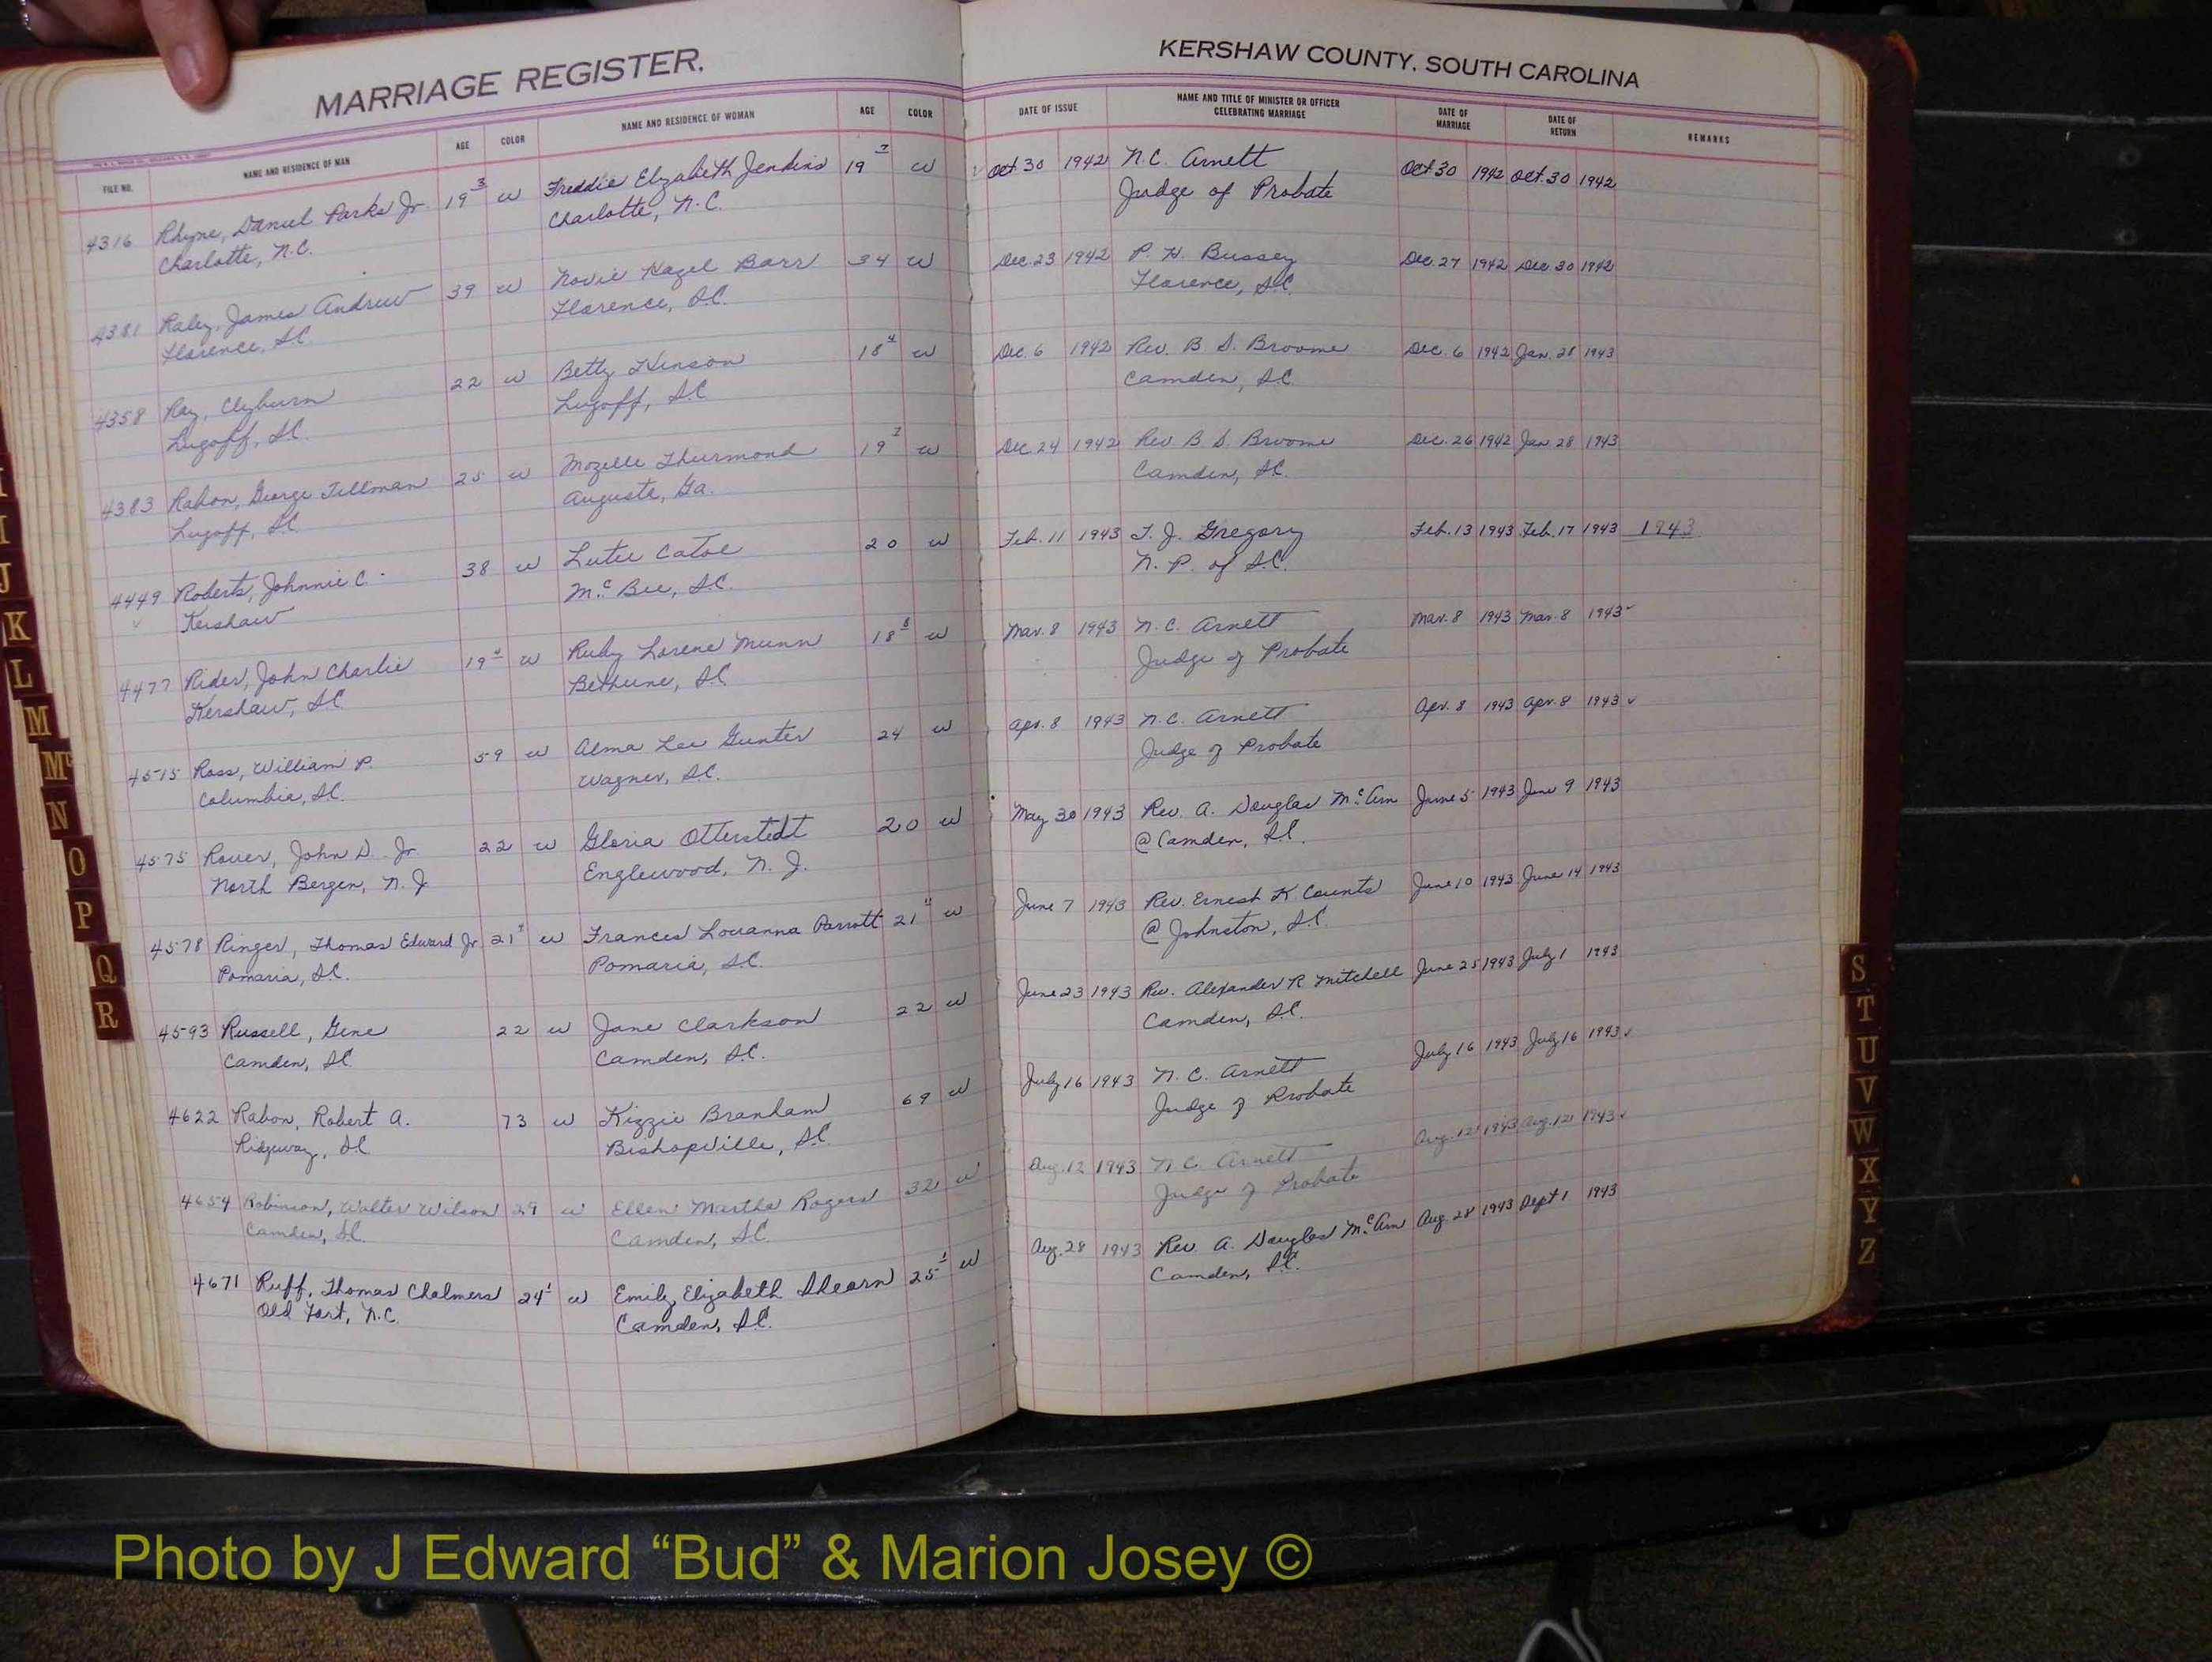 MARRIAGE REGISTER.
KERSHAW COUNTY, SOUTH CAROLINA
FILE NO. NAME AND RESIDENCE OF MAN AGE COLOR NAME AND RESIDENCE OF WOMAN AGE COLOR DATE OF ISSUE NAME AND TITLE OF MINISTER OR OFFICER CELEBRATING MARRIAGE DATE OF MARRIAGE DATE OF RETURN REMARKS
4316 Rhyne, Daniel Parks Jr. 19 3 w Freddie Elizabeth Jenkins 19 w Oct. 30 1942 N.C. Arnett Oct 30 1942 Oct. 30 1942
Charlotte, N.C. Charlotte, N.C. Judge of Probate
4381 Raley, James Andrew 39 w Novie Hazel Barr 34 w Dec. 23 1942 P. H. Bussey Dec. 27 1942 Dec. 30 1942
Florence, S.C. Florence, S.C. Florence, S.C.
4358 Ray, Clyburn 22 w Betty Hinson 18 4 w Dec. 6 1942 Rev. B. S. Broome Dec. 6 1942 Jan. 28 1943
Lugoff, S.C. Lugoff, S.C. Camden, S.C.
4383 Rabon, George Tillman 25 w Mozelle Thurmond 19 w Dec. 24 1942 Rev B. S. Broome Dec. 26 1942 Jan. 28 1943
Lugoff, S.C. Augusta, Ga. Camden, S.C.
4449 Roberts, Johnnie C. 38 w Lutie Catoe 20 w Feb. 11 1943 T. J. Gregory Feb. 13 1943 Feb. 17 1943 1943
Kershaw McBee, S.C. N. P. of S.C.
4477 Rider, John Charlie 19 4 w Ruby Lorene Munn 18 8 w Mar. 8 1943 N. C. Arnett Mar. 8 1943 Mar. 8 1943
Kershaw, S.C. Bethune, S.C. Judge of Probate
4515 Ross, William P. 59 w Alma Lee Gunter 24 w Apr. 8 1943 N.C. Arnett Apr. 8 1943 Apr. 8 1943
Columbia, S.C. Wagner, S.C. Judge of Probate
4575 Rouer, John D. Jr. 22 w Gloria Otterstedt 20 w May 30 1943 Rev. A. Douglas McArn June 5 1943 June 9 1943
North Bergen, N.J. Englewood, N. J. @ Camden, S.C.
4578 Ringer, Thomas Edward Jr 21 w Frances Louanna Parrott 21 w June 7 1943 Rev. Ernest K. Counts June 10 1943 June 14 1943
Pomaria, S.C. Pomaria, S.C. @ Johnston, S.C.
4593 Russell, Gene 22 w Jane Clarkson 22 w June 23 1943 Rev. Alexander R. Mitchell June 25 1943 July 1 1943
Camden, S.C. Camden, S.C. Camden, S.C.
4622 Rabon, Robert A. 73 w Kizzie Branham 69 w July 16 1943 N. C. Arnett July 16 1943 July 16 1943
Ridgeway, S.C. Bishopville, S.C. Judge of Probate
4654 Robinson, Walter Wilson 29 w Ellen Martha Rogers 32 w Aug. 12 1943 N. C. Arnett Aug. 12 1943 Aug. 12 1943
Camden, S.C. Camden, S.C. Judge of Probate
4671 Ruff, Thomas Chalmers 24 1 w Emily Elizabeth Shearn 25 1 w Aug. 28 1943 Rev. A. Douglas McArn Aug. 28 1943 Sept 1 1943
Old Fort, N.C. Camden, S.C. Camden, S.C.
I
J
K
L
M
Mc
N
O
P
Q
R
S
T
U
V
W
X
Y
Z
Photo by J Edward “Bud” & Marion Josey ©